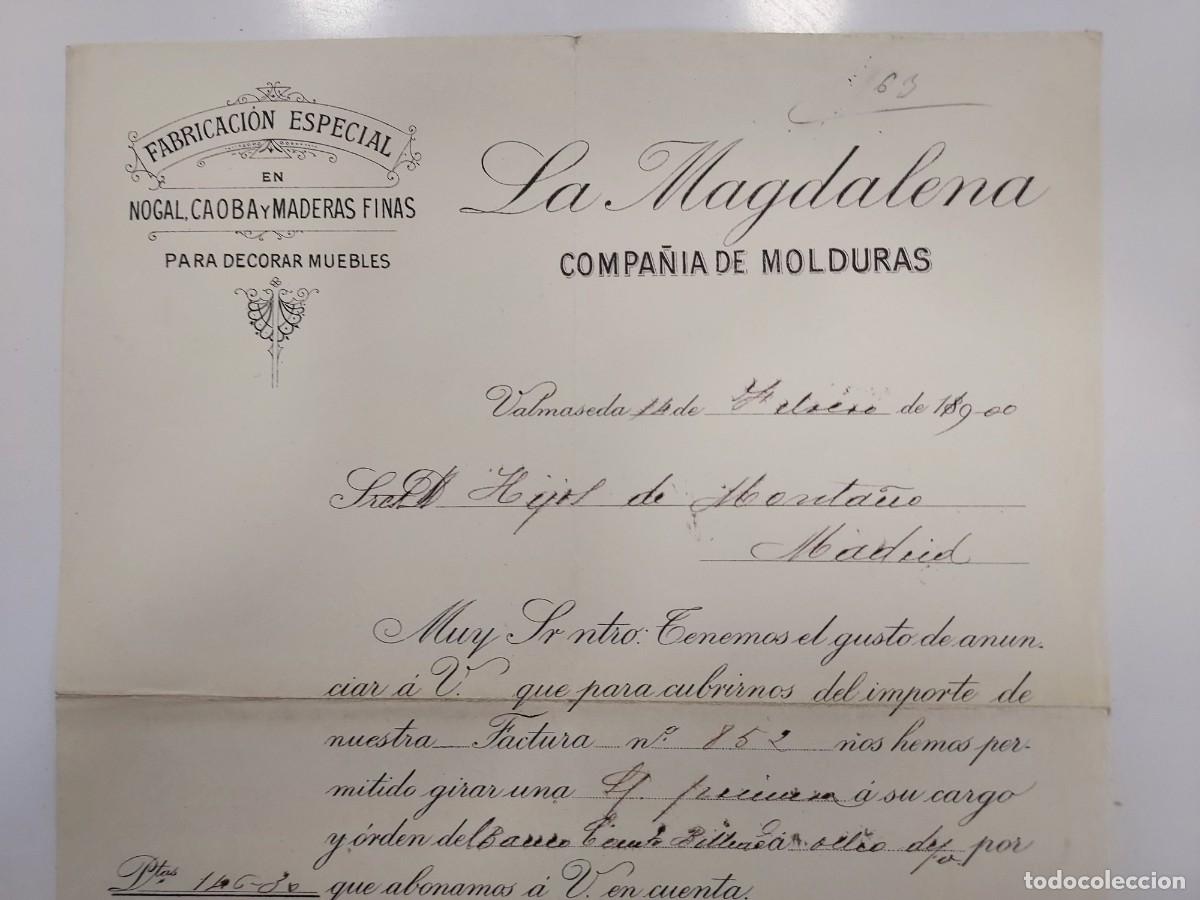 63
FABRICACIÓN ESPECIAL
EN
NOGAL, CAOBA Y MADERAS FINAS
PARA DECORAR MUEBLES
La Magdalena
COMPAÑIA DE MOLDURAS
Valmaseda 14 de Febrero de 1900
Sres. Hijos de Montaño
Madrid
Muy Sr ntro: Tenemos el gusto de anun-
ciar á V. que para cubrirnos del importe de
nuestra Factura nº 852 nos hemos per-
mitido girar una á su cargo
y órden del Banco á ocho d/v por
Ptas 146-30 que abonamos á V. en cuenta.
todocoleccion